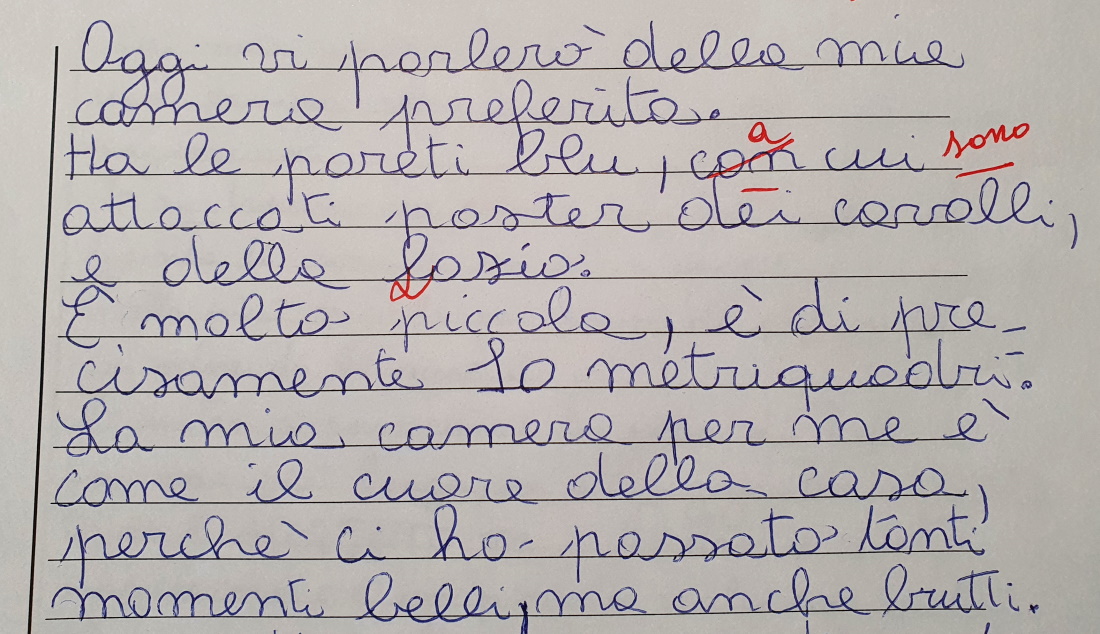 Oggi vi parlerò della mia
camera preferita.
Ha le pareti blu, con a cui sono
attaccati poster dei cavalli,
e della Lazio.
È molto piccola, è di pre-
cisamente 10 metriquadri.
La mia camera per me è
come il cuore della casa,
perchè ci ho passato tanti
momenti belli, ma anche brutti.